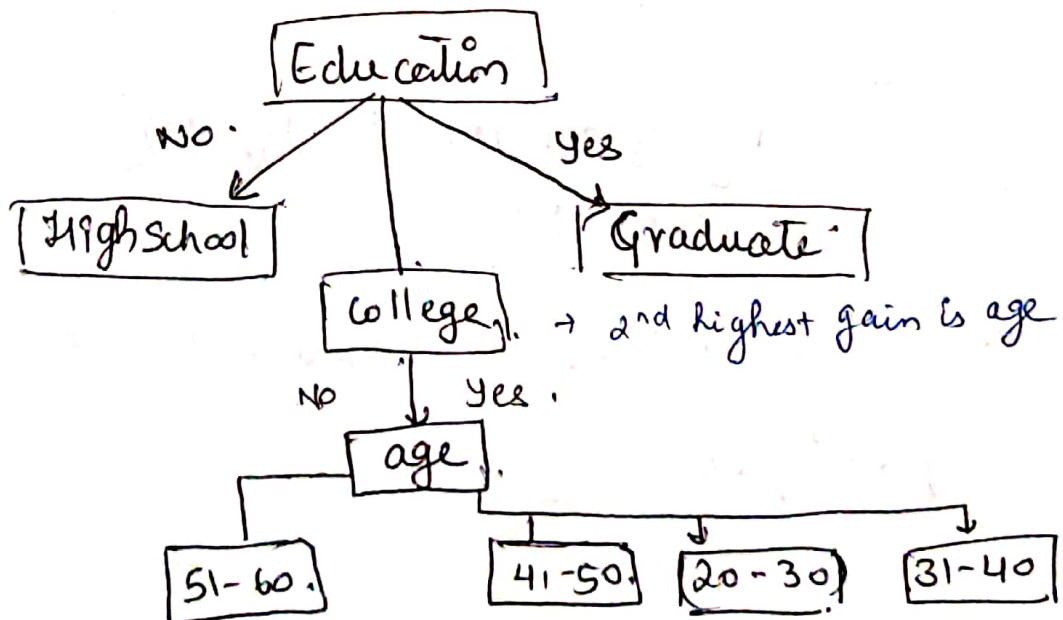 Education
NO.
Yes
High School
Graduate.
college → 2nd highest gain is age
NO Yes.
age
51-60. 41-50. 20-30 31-40